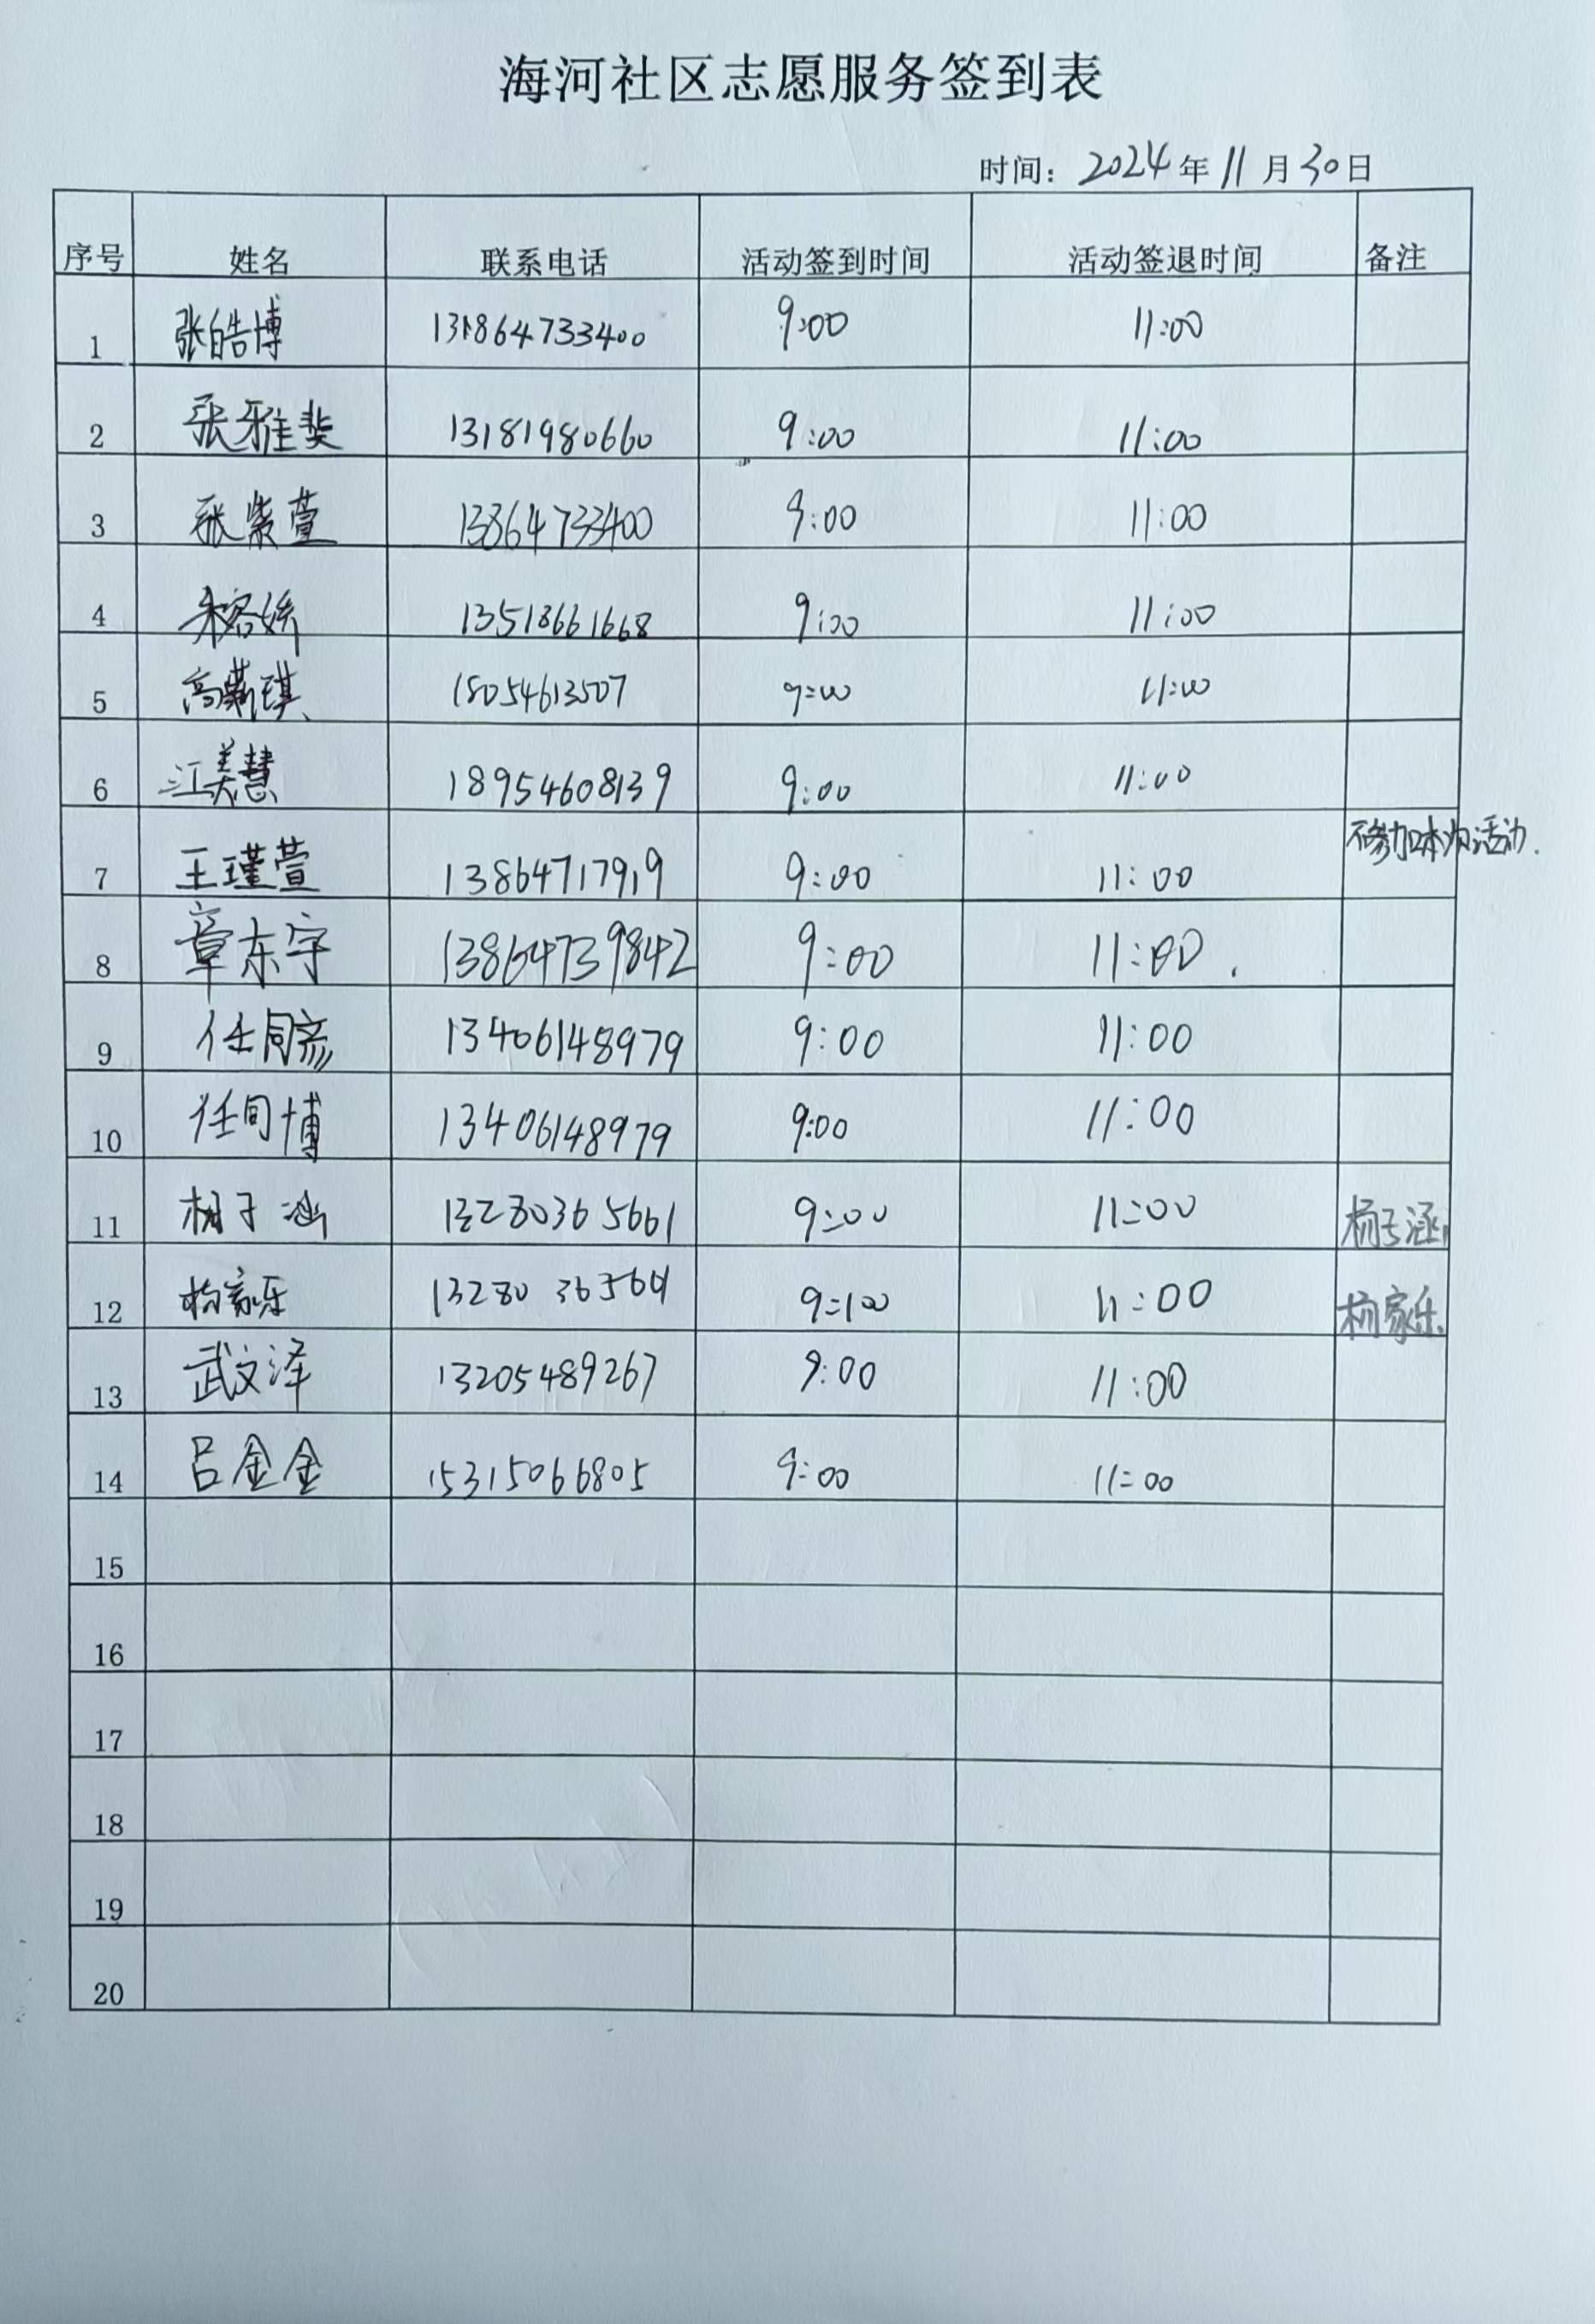 海河社区志愿服务签到表
时间：2024年11月30日
序号 姓名 联系电话 活动签到时间 活动签退时间 备注
1 张皓博 13864733400 9:00 11:00
2 张雅斐 13181980660 9:00 11:00
3 张紫萱 13864733400 9:00 11:00
4 朱容娇 13518661668 9:00 11:00
5 高薪琪 15054613507 9:00 11:00
6 江美慧 18954608139 9:00 11:00
7 王瑾萱 13864717919 9:00 11:00 不参加本次活动.
8 章东宇 13864739842 9:00 11:00.
9 任同彦 13406148979 9:00 11:00
10 任同博 13406148979 9:00 11:00
11 杨子涵 13280365661 9:00 11:00 杨子涵
12 杨家乐 13280365661 9:00 11:00 杨家乐
13 武文泽 13205489267 9:00 11:00
14 吕金金 15315066805 9:00 11:00
15
16
17
18
19
20